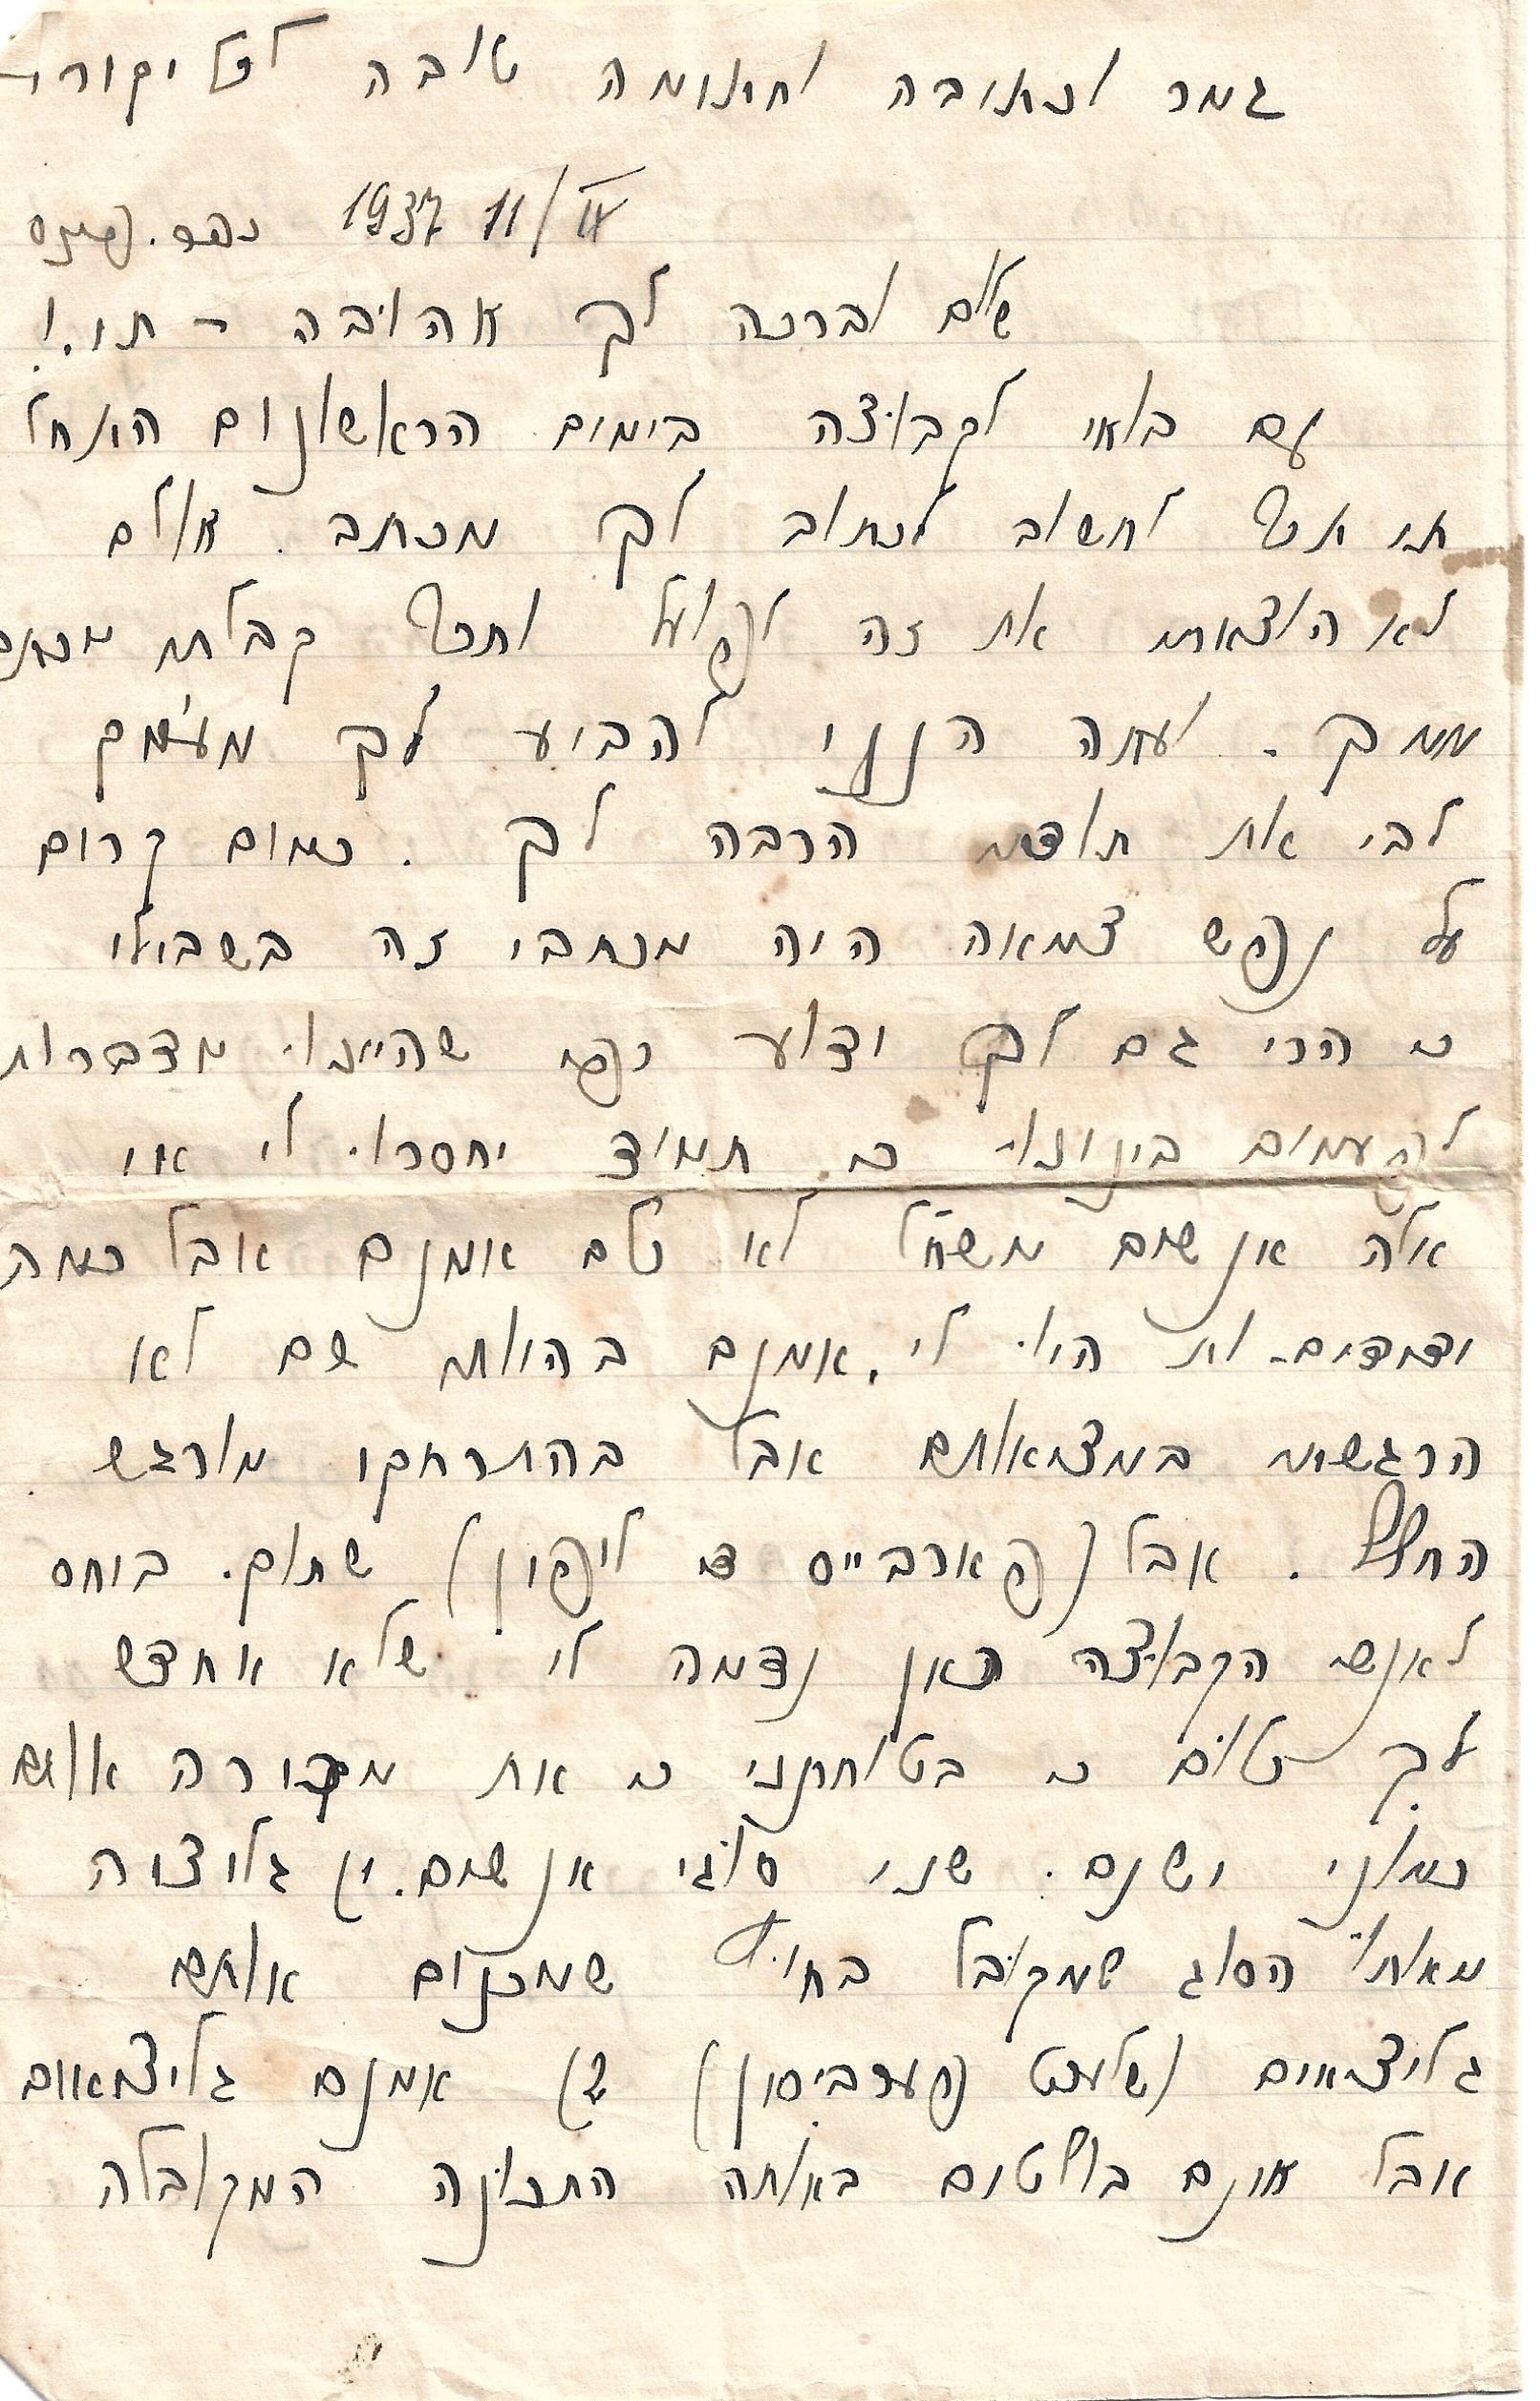 גמר וכתיבה וחתומה טובה לך יקורתי
11/IX 1937
שלום וברכה לך אהובה - תו.!
עם בואי לקבוצה בימים הראשונים התחל
תי תכף לחשוב לכתוב לך מכתב. אולם
לא הוצאתי את זה לפועל ותכף קבלתי מכתב
ממך. ועתה הנני להביע לך מעומק
לבי את תודתי הרבה לך. כמים קרים
על נפש צמאה היה מכתבך זה בשבילי
כי הרי גם לך ידוע כפי שהיינו מדברות
לפעמים בינינו כי תמיד יחסרו לי אי
אלה אנשים משח"ל לא כולם אמנם אבל כמה
ידידים-ות היו לי. אמנם בהיותי שם לא
הרגשתי במציאותם אבל בהתרחקי מורגש
החלל. אבל (פארבייס די ליפן) שתוק. ביחס
לאנשי הקבוצה כאן נדמה לי שלא אחדש
לך כלום כי בטוחתני כי את מכירה אותם
כמוני ישנם. שני סוגי אנשים. 1) גליציה
מאותו הסוג שמקובל בחו"ל שמכנים אותם
גליצאים (שלעכט פערביסן) 2) אמנם גליציאים
אבל אינם בולטים באותה התכונה המקובלה